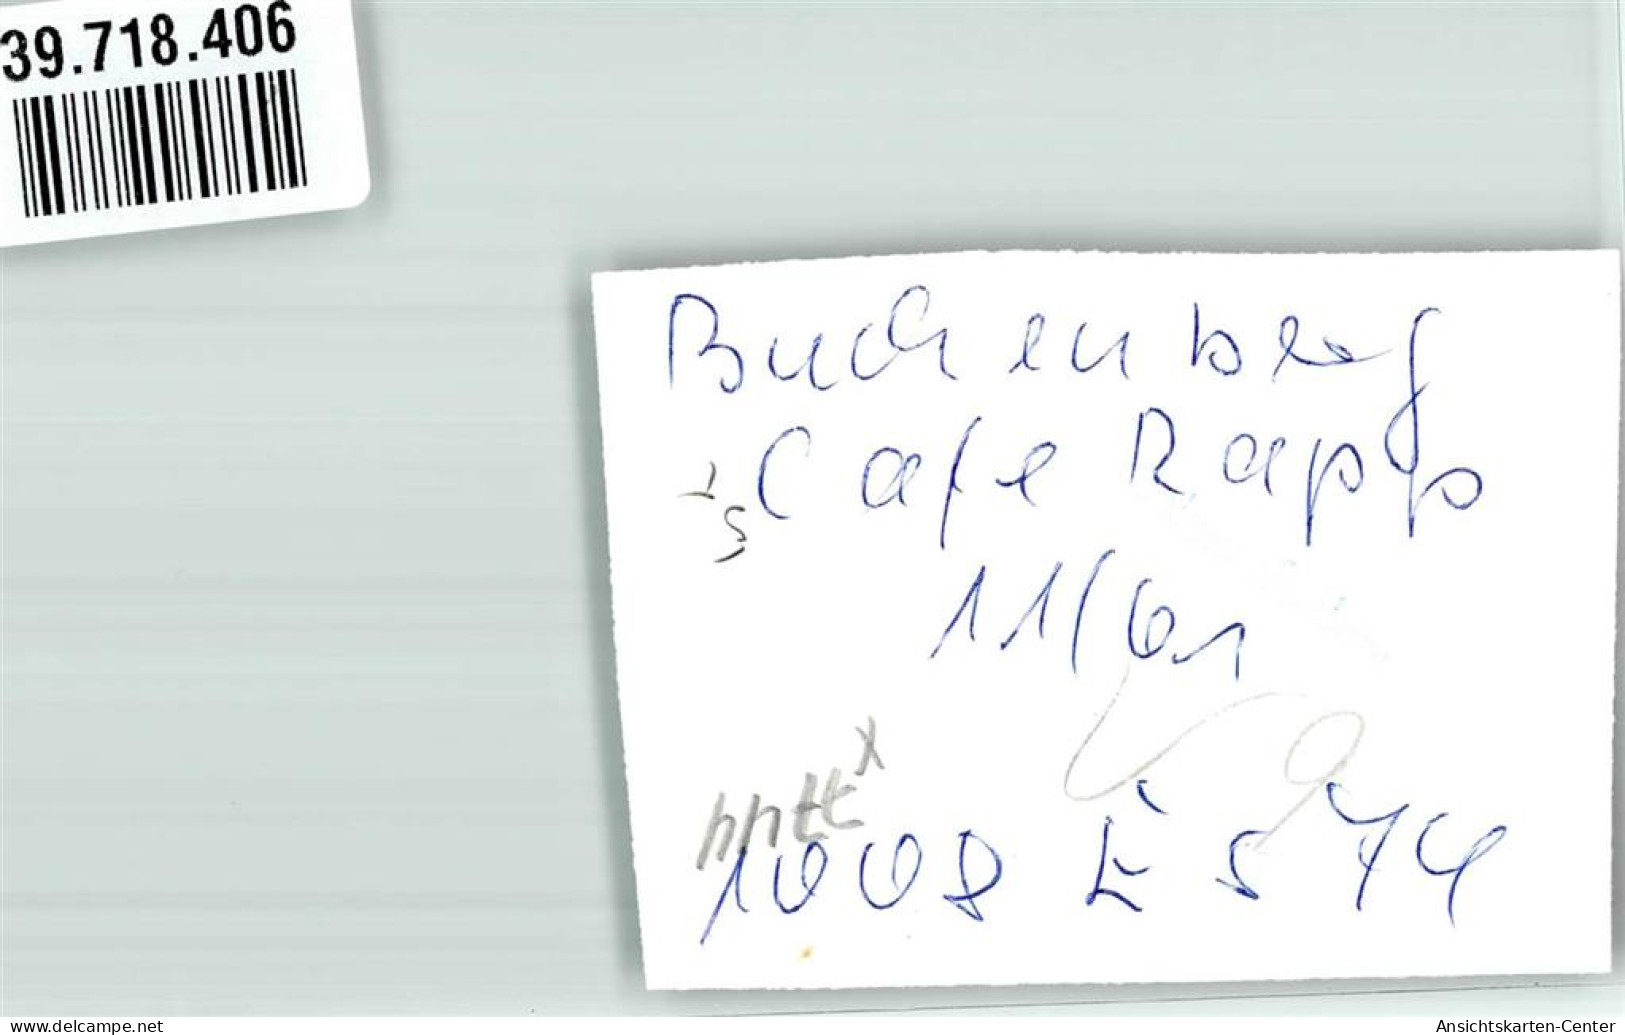 39.718.406
Buchenberg
Cafe Rapp
11/61
1008 E 574
www.delcampe.net
Ansichtskarten-Center